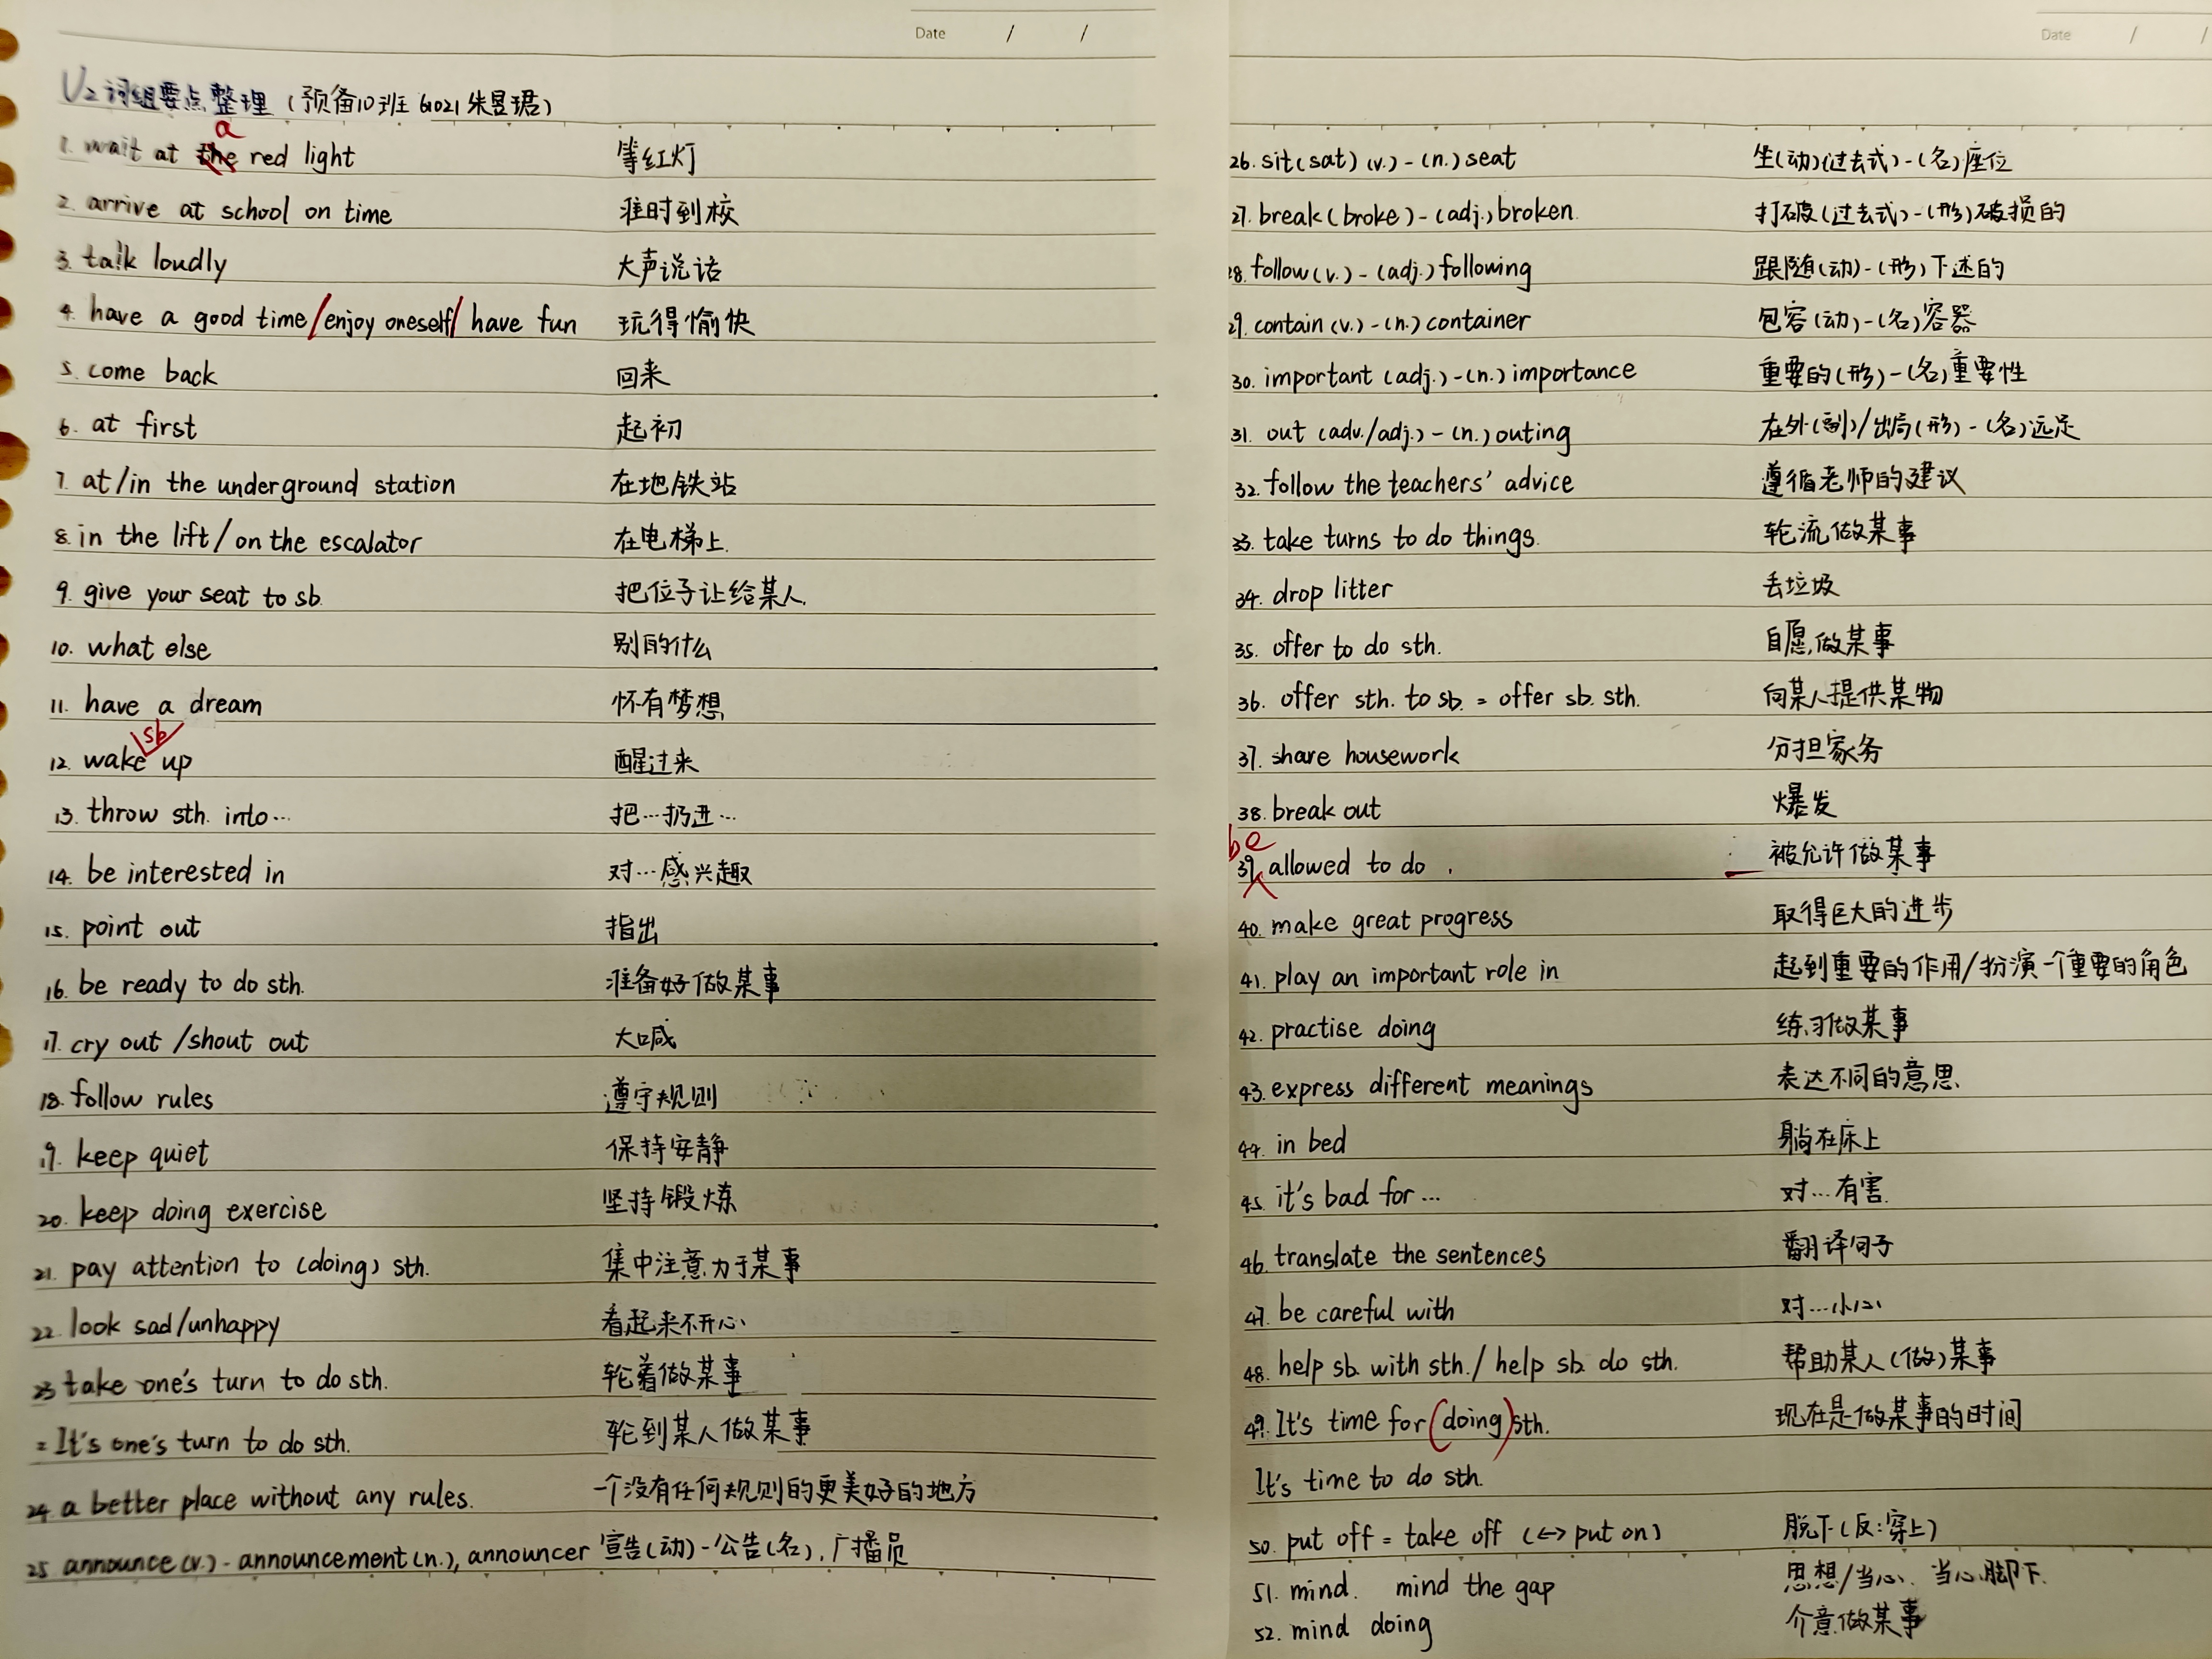 Date / /
U2 词组要点整理 (预备10班 61021 朱昱珺)
a
1. wait at the red light 等红灯
2. arrive at school on time 准时到校
3. talk loudly 大声说话
4. have a good time/enjoy oneself/have fun 玩得愉快
5. come back 回来
6. at first 起初
7. at/in the underground station 在地铁站
8. in the lift/on the escalator 在电梯上.
9. give your seat to sb. 把位子让给某人.
10. what else 别的什么
11. have a dream 怀有梦想
sb
12. wake up 醒过来
13. throw sth. into… 把…扔进…
14. be interested in 对…感兴趣
15. point out 指出
16. be ready to do sth. 准备好做某事
17. cry out /shout out 大喊
18. follow rules 遵守规则
19. keep quiet 保持安静
20. keep doing exercise 坚持锻炼
21. pay attention to (doing) sth. 集中注意力于某事
22. look sad/unhappy 看起来不开心
23 take one's turn to do sth. 轮着做某事
= It's one's turn to do sth. 轮到某人做某事
24. a better place without any rules. 一个没有任何规则的更美好的地方
25. announce(v.) - announcement(n.), announcer 宣告(动)-公告(名), 广播员
Date / /
26. sit(sat) (v.) - (n.) seat 坐(动)(过去式)-(名)座位
27. break(broke) - (adj.) broken. 打破(过去式)-(形)破损的
28. follow(v.) - (adj.) following 跟随(动)-(形)下述的
29. contain (v.) - (n.) container 包容(动)-(名)容器
30. important (adj.) - (n.) importance 重要的(形)-(名)重要性
31. out (adv./adj.) - (n.) outing 在外(副)/出局(形)-(名)远足
32. follow the teachers' advice 遵循老师的建议
33. take turns to do things. 轮流做某事
34. drop litter 丢垃圾
35. offer to do sth. 自愿做某事
36. offer sth. to sb. = offer sb. sth. 向某人提供某物
37. share housework 分担家务
38. break out 爆发
be
39. allowed to do . 被允许做某事
40. make great progress 取得巨大的进步
41. play an important role in 起到重要的作用/扮演一个重要的角色
42. practise doing 练习做某事
43. express different meanings 表达不同的意思.
44. in bed 躺在床上
45. it's bad for … 对…有害.
46. translate the sentences 翻译句子
47. be careful with 对…小心
48. help sb. with sth./ help sb. do sth. 帮助某人(做)某事
49. It's time for (doing) sth. 现在是做某事的时间
It's time to do sth.
50. put off = take off (<-> put on) 脱下(反:穿上)
51. mind. mind the gap 思想/当心. 当心脚下.
52. mind doing 介意做某事